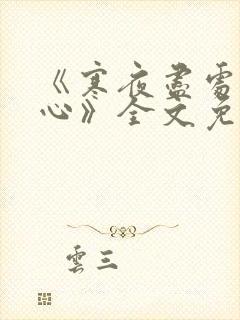 《寒夜盡需
心》全文免
雲三